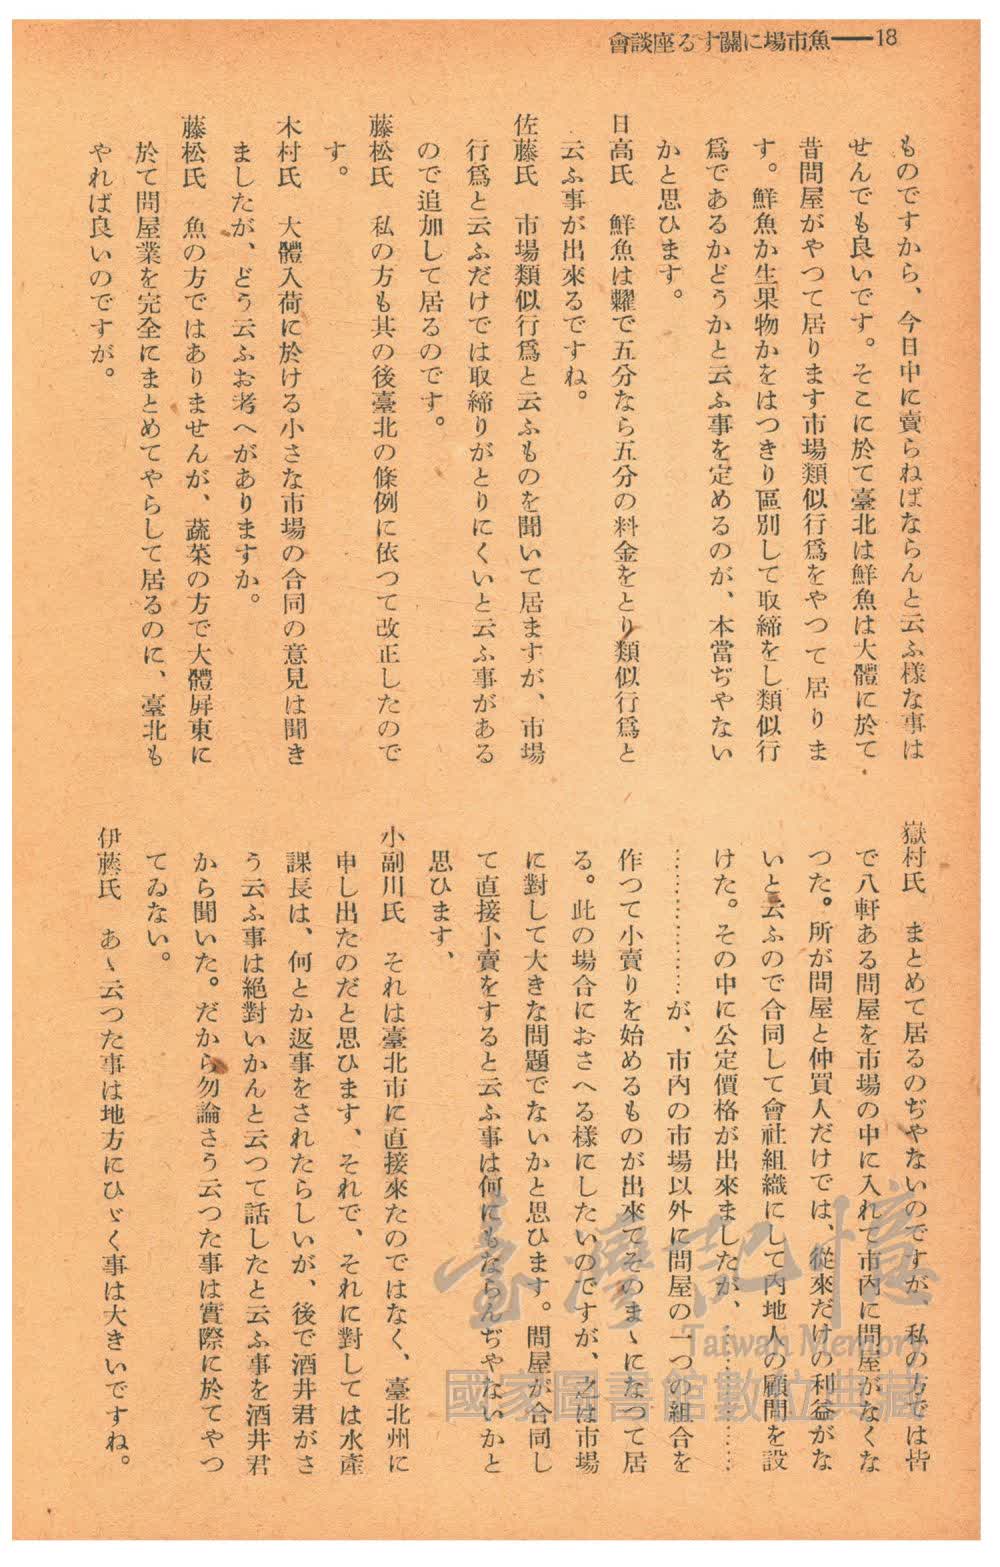 會談座るす關に場市魚――18
ものですから、今日中に賣らねばならんと云ふ樣な事は
せんでも良いです。そこに於て臺北は鮮魚は大體に於て
昔問屋がやつて居ります市場類似行爲をやつて居りま
す。鮮魚か生果物かをはつきり區別して取締をし類似行
爲であるかどうかと云ふ事を定めるのが、本當ぢやない
かと思ひます。
日高氏　鮮魚は糶で五分なら五分の料金をとり類似行爲と
云ふ事が出來るですね。
佐藤氏　市場類似行爲と云ふものを聞いて居ますが、市場
行爲と云ふだけでは取締りがとりにくいと云ふ事がある
ので追加して居るのです。
藤松氏　私の方も其の後臺北の條例に依つて改正したので
す。
木村氏　大體入荷に於ける小さな市場の合同の意見は聞き
ましたが、どう云ふお考へがありますか。
藤松氏　魚の方ではありませんが、蔬菜の方で大體屏東に
於て問屋業を完全にまとめてやらして居るのに、臺北も
やれば良いのですが。
嶽村氏　まとめて居るのぢやないのですが、私の方では皆
で八軒ある問屋を市場の中に入れて市內に問屋がなくな
つた。所が問屋と仲買人だけでは、從來だけの利益がな
いと云ふので合同して會社組織にして內地人の顧問を設
けた。その中に公定價格が出來ましたが、…………
……………が、市內の市場以外に問屋の一つの組合を
作つて小賣りを始めるものが出來てそのまゝになつて居
る。此の場合におさへる樣にしたいのですが、之は市場
に對して大きな問題でないかと思ひます。問屋が合同し
て直接小賣をすると云ふ事は何にもならんぢやないかと
思ひます、
小副川氏　それは臺北市に直接來たのではなく、臺北州に
申し出たのだと思ひます、それで、それに對しては水產
課長は、何とか返事をされたらしいが、後で酒井君がさ
う云ふ事は絕對いかんと云つて話したと云ふ事を酒井君
から聞いた。だから勿論さう云つた事は實際に於てやつ
てゐない。
伊藤氏　あゝ云つた事は地方にひゞく事は大きいですね。
臺灣記憶
Taiwan Memory
國家圖書館數位典藏